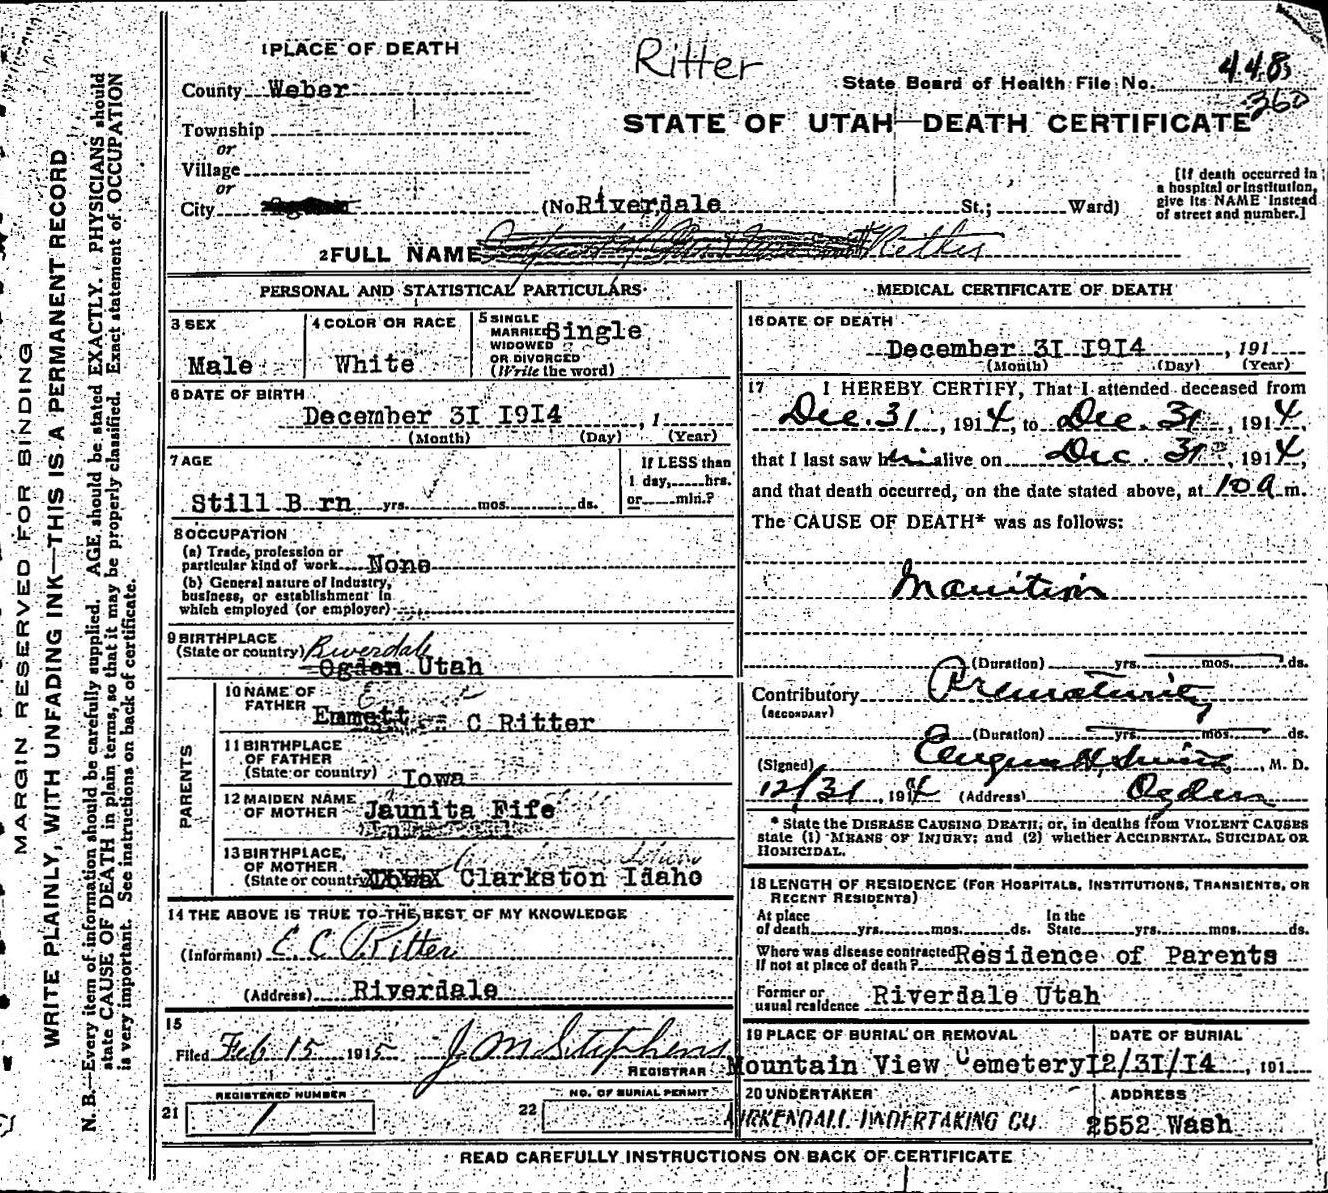 Ritter
1 PLACE OF DEATH
County Weber
State Board of Health File No. 448
360
Township
or
Village
or
City
STATE OF UTAH—DEATH CERTIFICATE
(No Riverdale St.; Ward)
[If death occurred in a hospital or institution, give its NAME instead of street and number.]
2 FULL NAME Ritter
PERSONAL AND STATISTICAL PARTICULARS
3 SEX
Male
4 COLOR OR RACE
White
5 SINGLE MARRIED WIDOWED OR DIVORCED (Write the word)
Single
6 DATE OF BIRTH
December 31 1914, 1
(Month) (Day) (Year)
7 AGE
Still B rn yrs. mos. ds.
If LESS than 1 day, hrs. or min.?
8 OCCUPATION
(a) Trade, profession or particular kind of work None
(b) General nature of industry, business, or establishment in which employed (or employer)
9 BIRTHPLACE
(State or country) Riverdale
Ogden Utah
PARENTS
10 NAME OF FATHER
Emmett C Ritter
11 BIRTHPLACE OF FATHER (State or country) Iowa
12 MAIDEN NAME OF MOTHER Jaunita Fife
13 BIRTHPLACE, OF MOTHER (State or country) Clarkston Idaho
14 THE ABOVE IS TRUE TO THE BEST OF MY KNOWLEDGE
(Informant) E. C. Ritter
(Address) Riverdale
15
Filed Feb 15 1915 J M Stephens
REGISTRAR
21 REGISTERED NUMBER
1
22 NO. OF BURIAL PERMIT
MEDICAL CERTIFICATE OF DEATH
16 DATE OF DEATH
December 31 1914, 191
(Month) (Day) (Year)
17 I HEREBY CERTIFY, That I attended deceased from
Dec. 31, 1914, to Dec. 31, 1914,
that I last saw him alive on Dec. 31st, 1914,
and that death occurred, on the date stated above, at 10 a m.
The CAUSE OF DEATH* was as follows:
(Duration) yrs. mos. ds.
Contributory Prematurity
(SECONDARY)
(Duration) yrs. mos. ds.
(Signed) Eugene H. Smith, M. D.
12/31, 1914 (Address) Ogden
* State the DISEASE CAUSING DEATH; or, in deaths from VIOLENT CAUSES
state (1) MEANS OF INJURY; and (2) whether ACCIDENTAL, SUICIDAL OR
HOMICIDAL.
18 LENGTH OF RESIDENCE (FOR HOSPITALS, INSTITUTIONS, TRANSIENTS, OR
RECENT RESIDENTS)
At place of death yrs. mos. ds. In the State yrs. mos. ds.
Where was disease contracted If not at place of death? Residence of Parents
Former or usual residence Riverdale Utah
19 PLACE OF BURIAL OR REMOVAL
Mountain View Cemetery
DATE OF BURIAL
12/31/14, 191
20 UNDERTAKER
KIRKENDALL UNDERTAKING CO.
ADDRESS
2552 Wash
READ CAREFULLY INSTRUCTIONS ON BACK OF CERTIFICATE
MARGIN RESERVED FOR BINDING
WRITE PLAINLY, WITH UNFADING INK—THIS IS A PERMANENT RECORD
N. B.—Every item of information should be carefully supplied. AGE should be stated EXACTLY. PHYSICIANS should
state CAUSE OF DEATH in plain terms, so that it may be properly classified. Exact statement of OCCUPATION
is very important. See instructions on back of certificate.